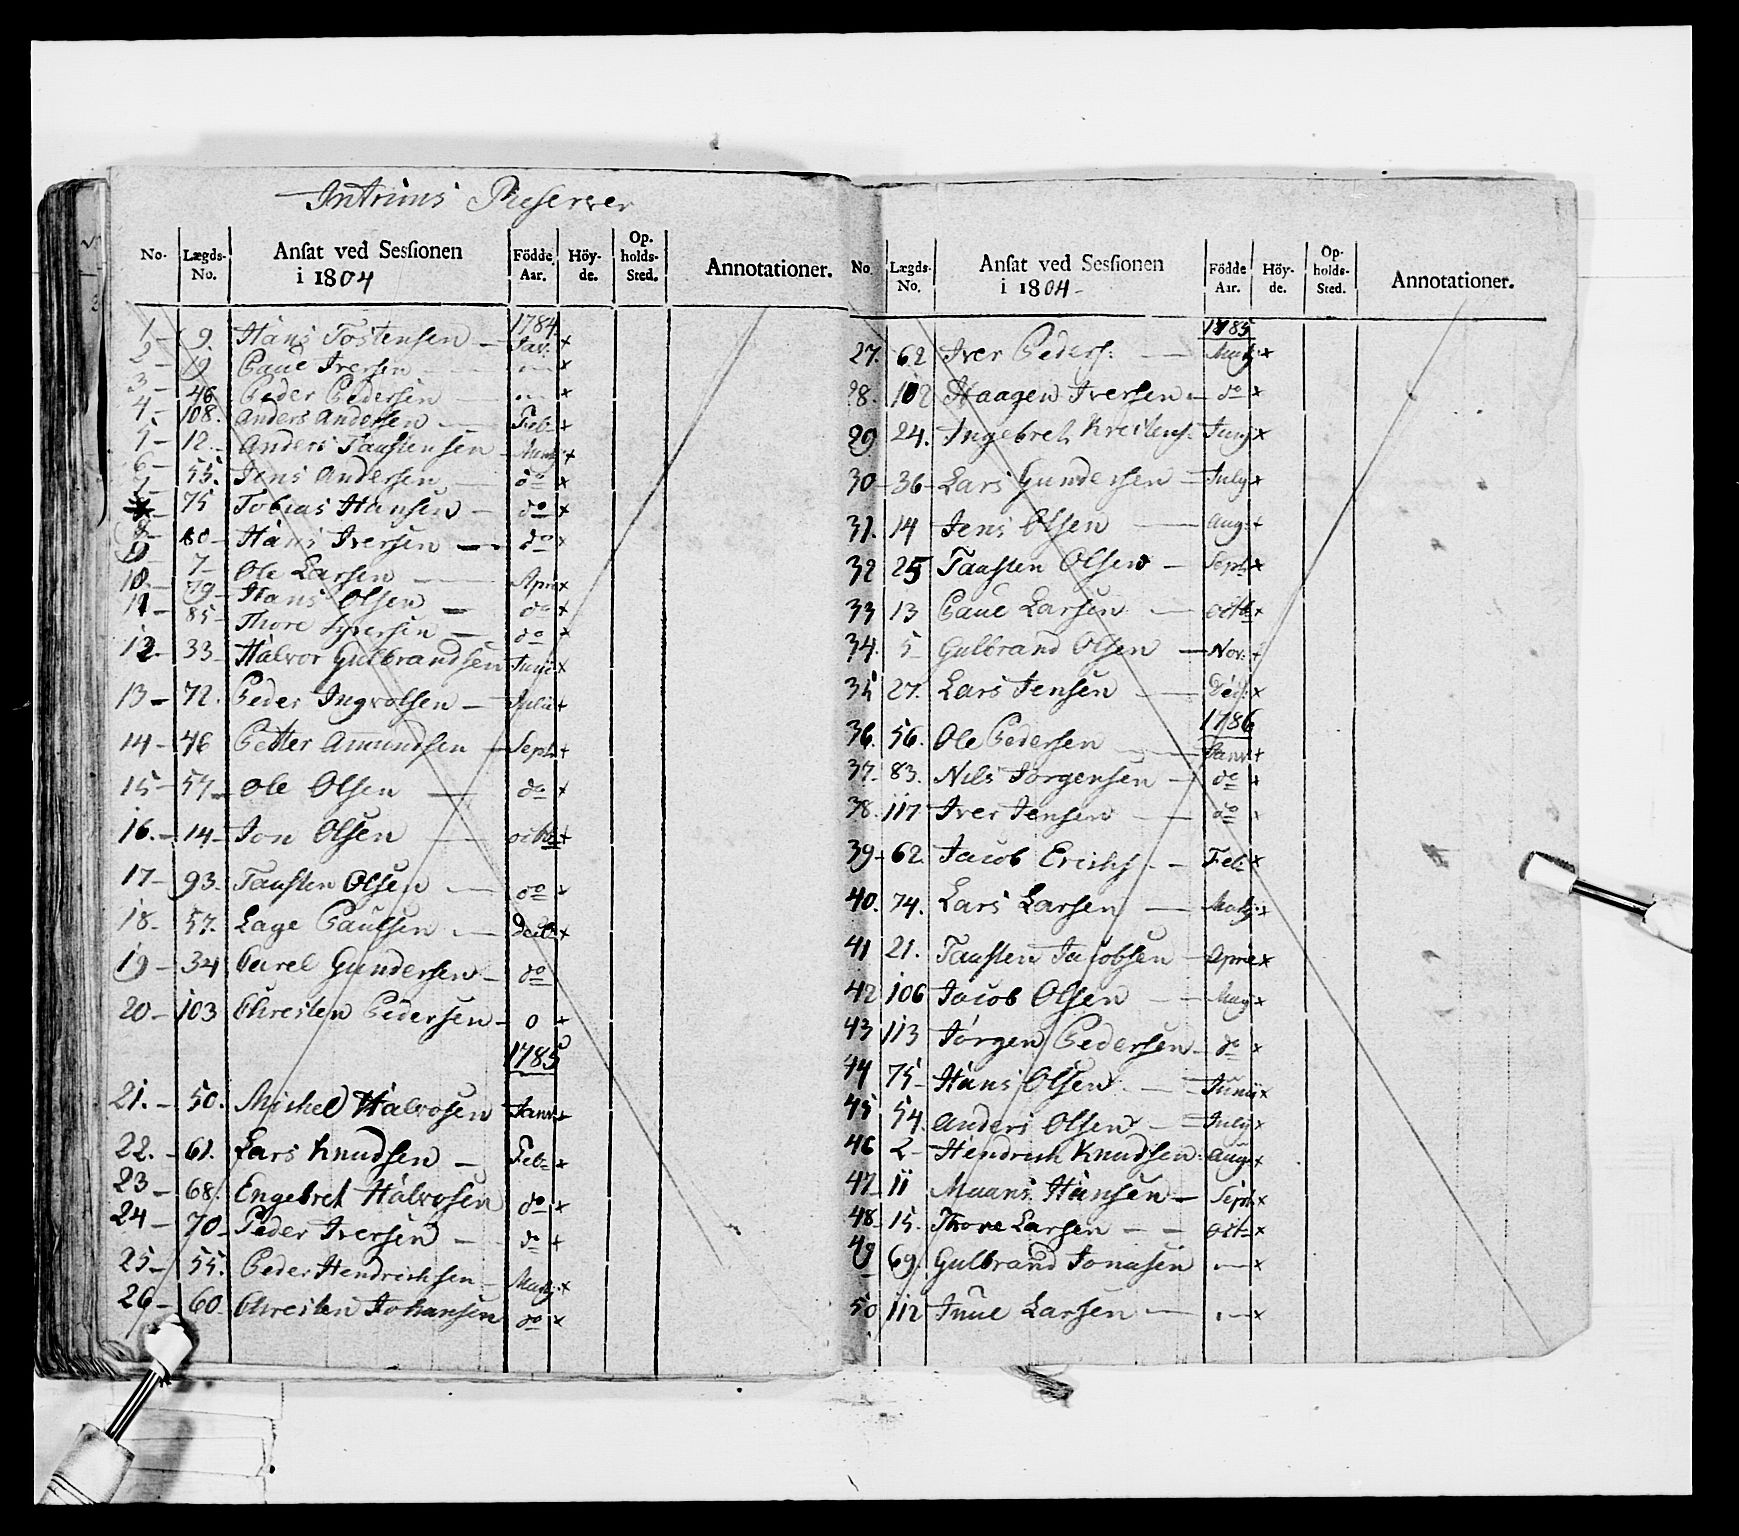 Intrims Reserver
No. Lægds-No. Ansat ved Sessionen i 1804 Födde Aar. Höy-de. Op-holds-Sted. Annotationer.
1784
1 - 9. Hans Tostensen - Jav: x
2 - 19 Paul Iversen - — x
3 - 46 Peder Pedersen - — x
4 - 108. Anders Andersen - Feb x
5 - 12. - Anders Taustensen - Martj x
6 - 55. Jens Andersen - do x
7 - 75 Tobias Hansen - do x
8 - 80 - Hans Iversen - do x
9 - 7 - Ole Larsen -
10. - 79 - Hans Olsen - Apr x
11 - 85 - Thore Syversen - do x
do x
12. - 33 - Halvor Gulbrandsen Junii x
13 - 72. Peder Ingvolsen - Julii x
14 - 46 Petter Amundsen - Sept x
15 - 57 - Ole Olsen - do x
16. - 14 - Jon Olsen - octb x
17 - 93. Tausten Olsen - do x
18. - 57. Lage Paulsen - Decb x
19 - 34 Carel Gundersen - do
20 - 103 Chresten Pedersen - 0 x
1785
21. - 50. Michel Halvosen Janv x
22. - 61. Lars Knudsen - Feb x
23 - 68. Engebret Halvosen do x
24 - 70 - Peder Iversen - do x
25 - 55. Peder Hendrichsen - Martj x
26 - 60. Chresten Johansen do x
No. Lægds-No. Ansat ved Sessionen i 1804 - Födde Aar. Höy-de. Op-holds-Sted. Annotationer.
1785
27. 62 Iver Peders: - Martj x
28. 102 Haagen Iversen - do x
29 24. Ingebret Krestens. Junj x
30 - 36 - Lars Gundersen - July x
31. 14 Jens Olsen - Aug x
32 25 Tausten Olsen - Sept x
33 13 Paul Larsen - octb x
34. 5 Gulbrand Olsen - Nov. x
35 27. Lars Jensen - Decb. x
1786
36. 56. Ole Pedersen - Janv x
37. 83. Nils Jørgensen - do x
38. 117 Iver Jensen - do x
39 - 62. Jacob Erichs. - Feb x
40. 74. Lars Larsen - Martj x
41 21. Tausten Jacobsen - Apr x
42 106 Jacob Olsen - May x
43 113 Jørgen Pedersen - do x
44 75 - Hans Olsen - Junij x
45 54. Anders Olsen - July x
46 2 - Hendrich Knudsen Aug x
47 11 Maans Hansen - Sept x
48 - 15. Thore Larsen - - oct x
49 69. Gulbrand Jonasen - x
50 112 Juul Larsen - — x